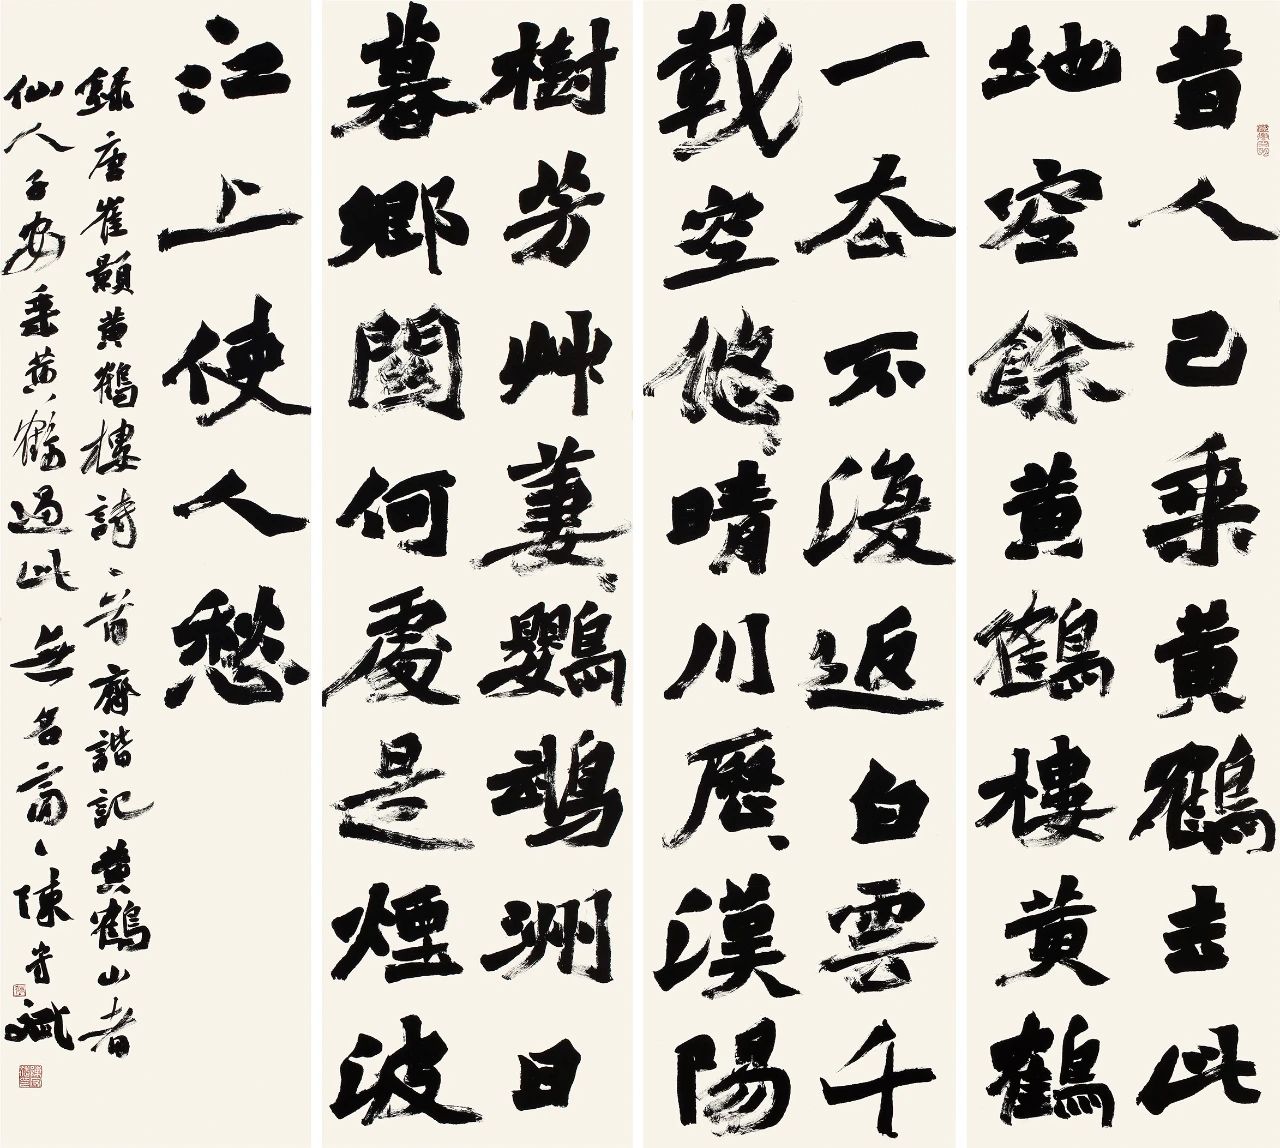 昔人已乘黄鶴去此
地空餘黄鶴樓黄鶴
一去不復返白雲千
載空悠々晴川歷々漢陽
樹芳艸萋々鸚鵡洲日
暮鄉關何處是煙波
江上使人愁
錄唐崔顥黄鶴樓詩一首齊諧記黄鶴山者
仙人子安乘黄鶴過此無名陳斌